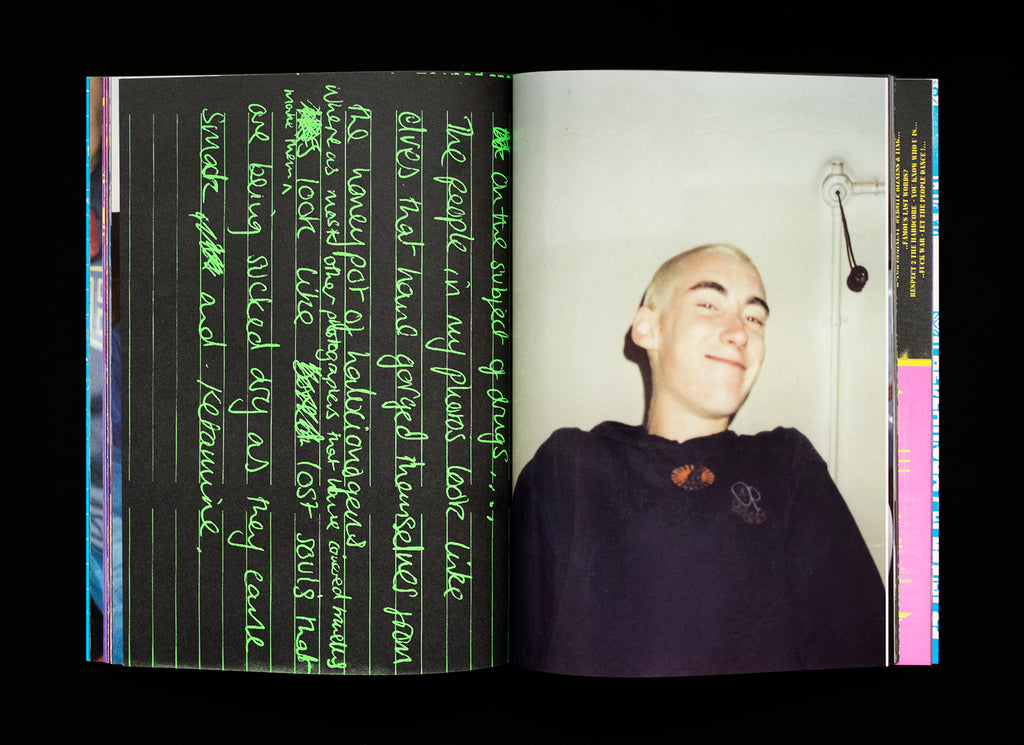 on the subject of drugs....,
The people in my photos look like
elves. that have gorged themselves from
the honeypot of halucionagens
where as most other photographers that have covered travellers
make them
look like lost souls that
are being sucked dry as they cane
smack and. Ketamine.
WEBSITE BIZNESS & TING...
..FAMOUS LAST WORDS?
RESPECT 2 THE HARDCORE - YOU KNOW WHO U IS...
..FUCK WAR - LET THE PEOPLE DANCE !...